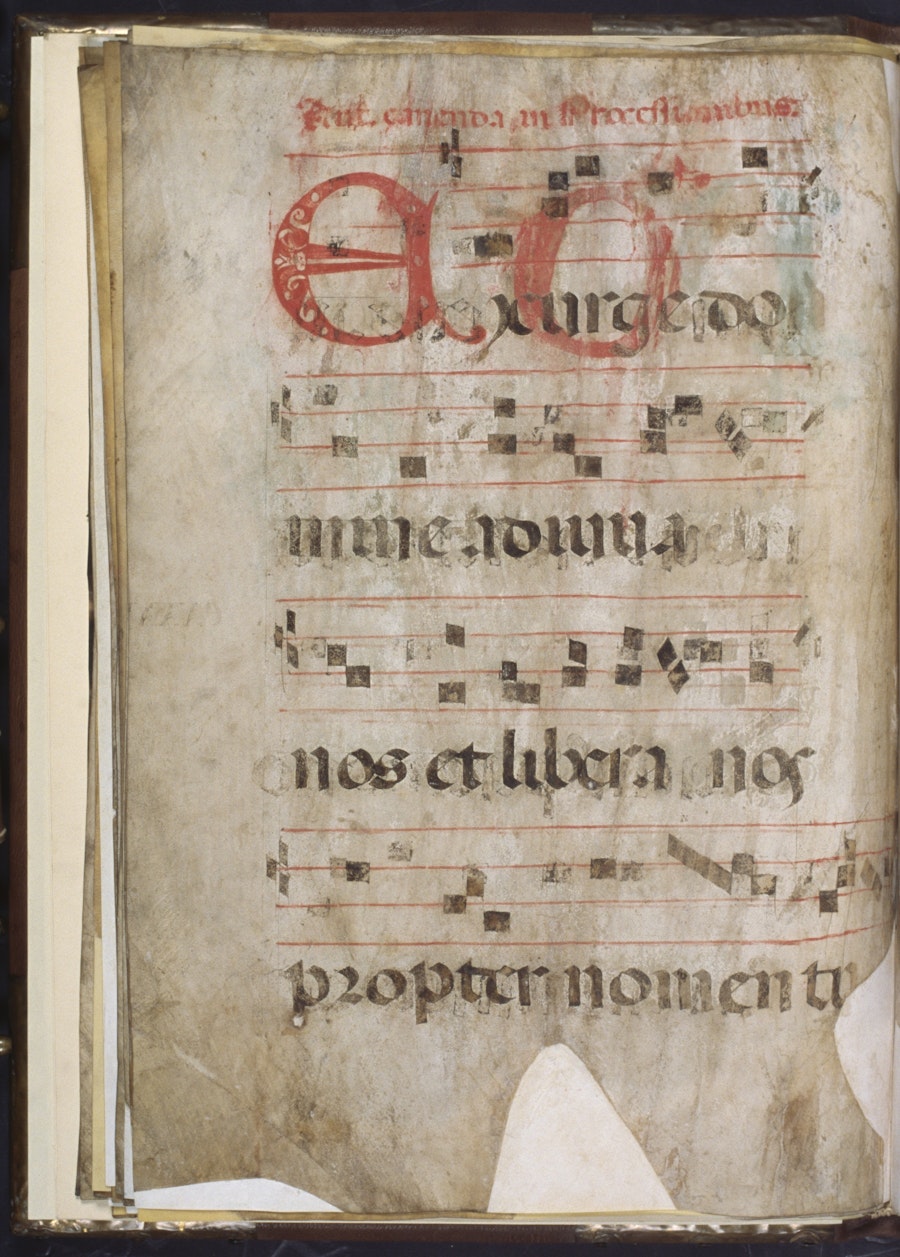 Ant. canenda in Processionibus.
Exurge do
mine adiuua
nos et libera nos
propter nomen tu